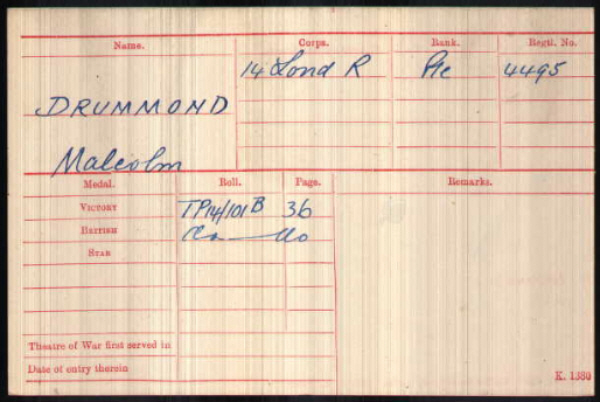 Name. Corps. Rank. Regtl. No.
14 Lond R Pte 4495
DRUMMOND
Malcolm
Medal. Roll. Page. Remarks.
VICTORY TP14/101B 36
BRITISH do do
STAR
Theatre of War first served in
Date of entry therein
K. 1380